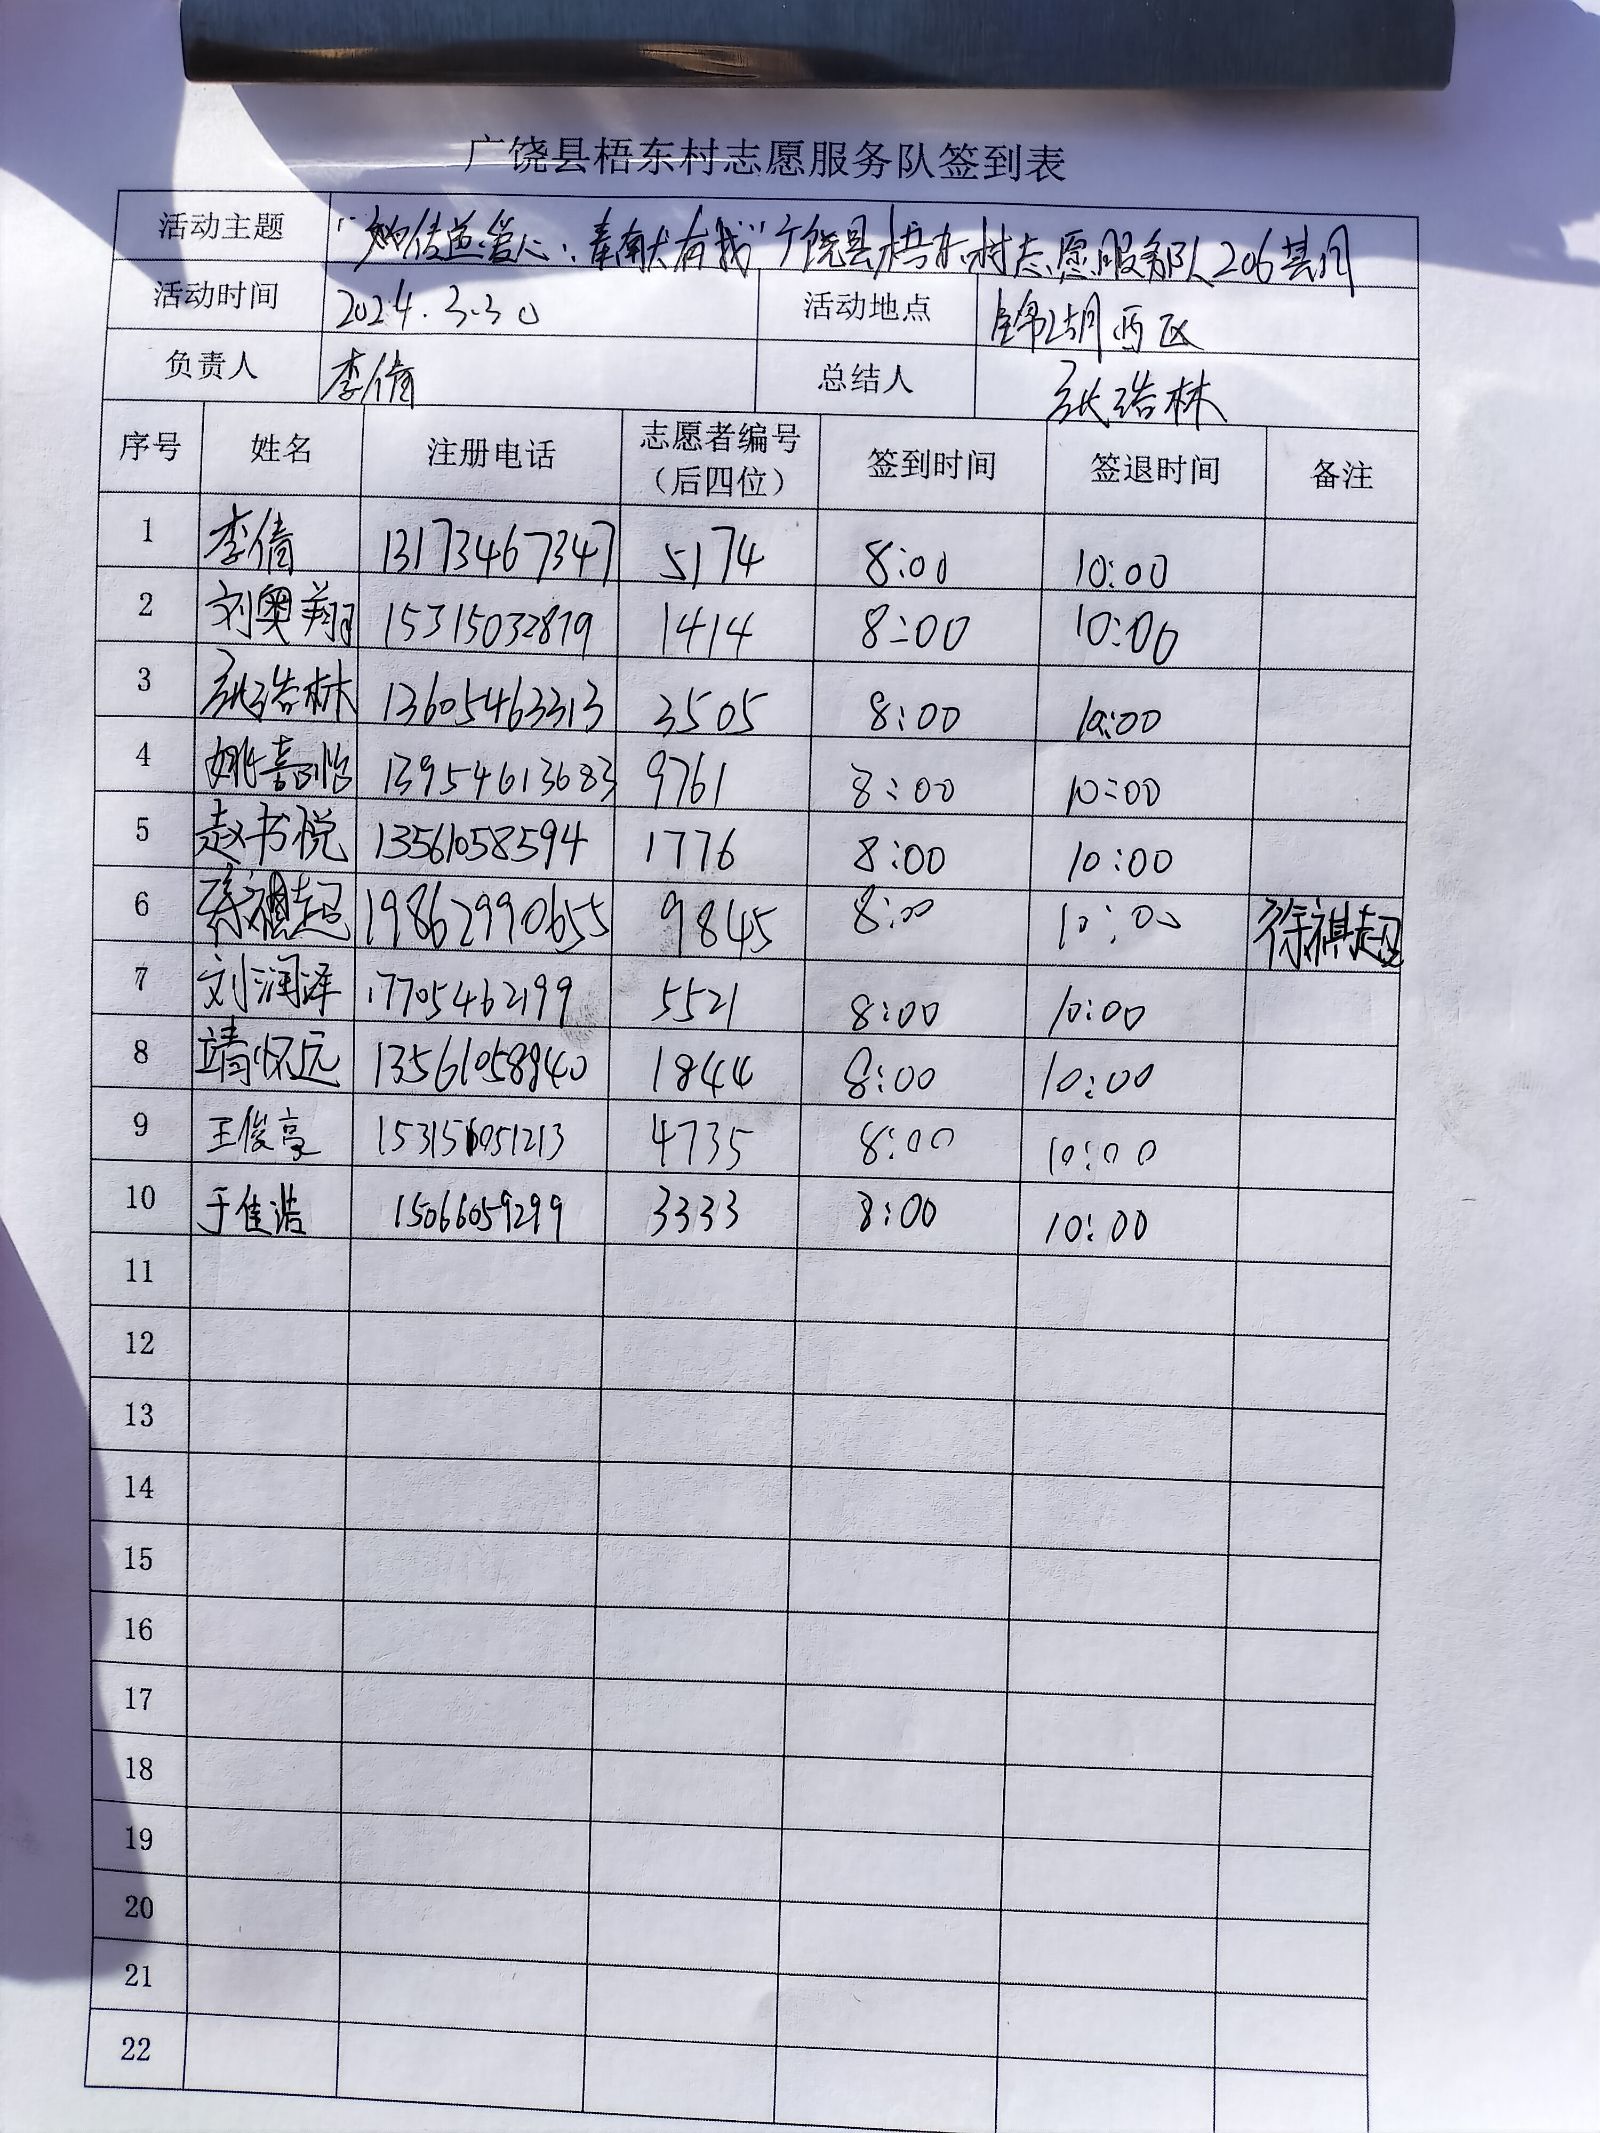 广饶县梧东村志愿服务队签到表
活动主题 “传递爱心:奉献有我”广饶县梧东村志愿服务队206其月
活动时间 2024.3.30 活动地点 锦湖西区
负责人 李倩 总结人 张浩林
序号 姓名 注册电话 志愿者编号(后四位) 签到时间 签退时间 备注
1 李倩 13173467347 5174 8:00 10:00
2 刘奥翔 15315032879 1414 8:00 10:00
3 张浩林 13605463313 3505 8:00 10:00
4 姚喜怡 13954613683 9761 8:00 10:00
5 赵书悦 13561058594 1776 8:00 10:00
6 祺超 19862990655 9845 8:00 10:00 徐祺超
7 刘润泽 17705462199 5521 8:00 10:00
8 靖怀远 13561058940 1844 8:00 10:00
9 王俊豪 4735 8:00 10:00
10 于佳浩 15066059299 3333 8:00 10:00
11
12
13
14
15
16
17
18
19
20
21
22